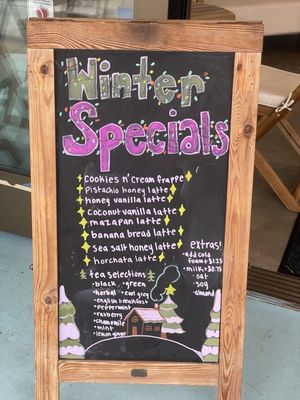 Winter
Specials
Cookies n' Cream frappe
Pistachio honey latte
honey vanilla latte
Coconut vanilla latte
mazapan latte
banana bread latte
Sea salt honey latte
horchata latte
extras!
-add cold
foam+$1.25
-milk+$0.75
oat
soy
almond
tea selections
-black -green
-herbal -earl grey
-english breakfast
-peppermint
-raspberry
-chamomile
-mint
-lemon ginger